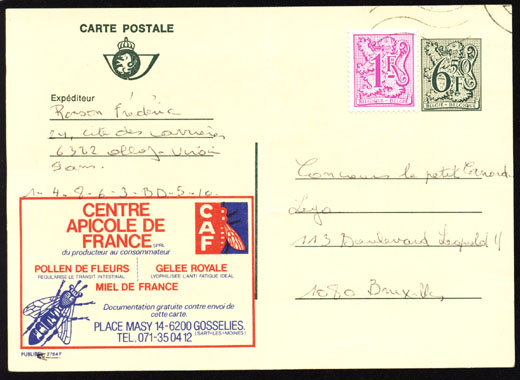 CARTE POSTALE
1F
BELGIQUE - BELGIË
6,50F
BELGIË - BELGIQUE
Expéditeur
Frédéric
24, cité des
6322
1-4-8-6-3-BD-5-10.
Concours le petit Canard
Lego
113 Boulevard Léopold II
1080 Bruxelles
CENTRE
APICOLE DE
FRANCE SPRL
CAF
du producteur au consommateur
POLLEN DE FLEURS
GELEE ROYALE
REGULARISE LE TRANSIT INTESTINAL
LYOPHILISEE L'ANTI FATIGUE IDEAL
MIEL DE FRANCE
Documentation gratuite contre envoi de
cette carte.
PLACE MASY 14-6200 GOSSELIES.
(SART-LES-MOINES)
TEL. 071-35 04 12
PUBLIBEL 2784 F